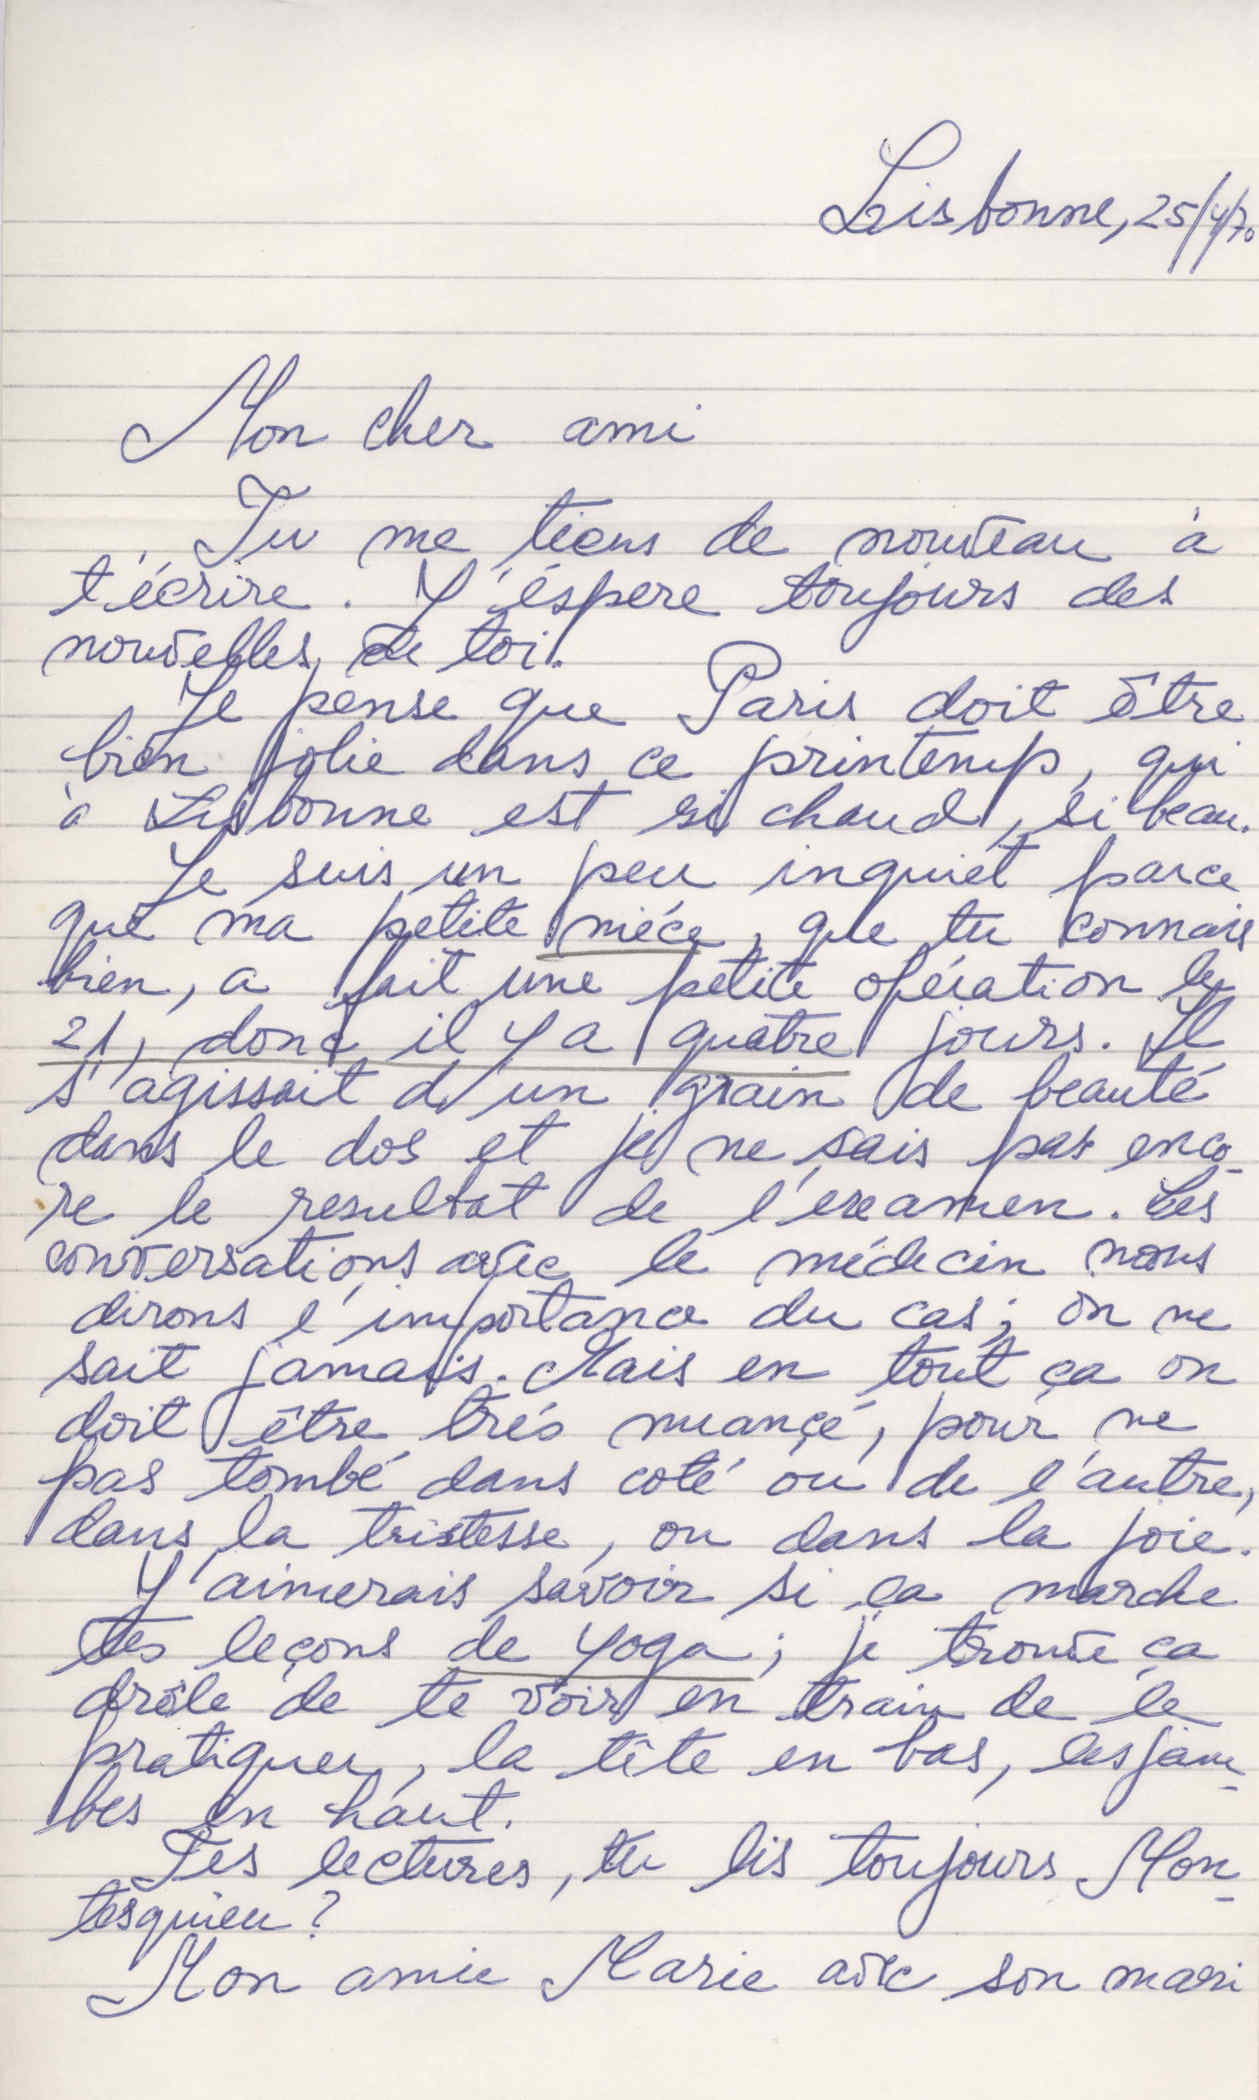 Lisbonne, 25/4/70
Mon cher ami
Tu me tiens de nouveau à
t'écrire. Y'éspere toujours des
nouvelles de toi.
Je pense que Paris doit être
bien jolie dans ce printemp, qui
à Lisbonne est si chaud, si beau.
Je suis un peu inquiet parce
que ma petite niéce, que tu connais
bien, a fait une petite opération le
21, donc il y a quatre jours. Il
s'agissait d'un grain de beauté
dans le dos et je ne sais pas enco-
re le resultat de l'examen. Les
conversations avec le médecin nous
dirons l'importance du cas; on ne
sait jamais. Mais en tout ça on
doit être trés nuançé, pour ne
pas tombé dans coté ou de l'autre,
dans la tristesse, ou dans la joie.
Y'aimerais savoir si ça marche
tes leçons de yoga; je trouve ça
drôle de te voir en train de le
pratiquer, la tête en bas, les jam-
bes en haut.
Tes lectures, tu lis toujours Mon-
tesquieu?
Mon amie Marie avec son mari